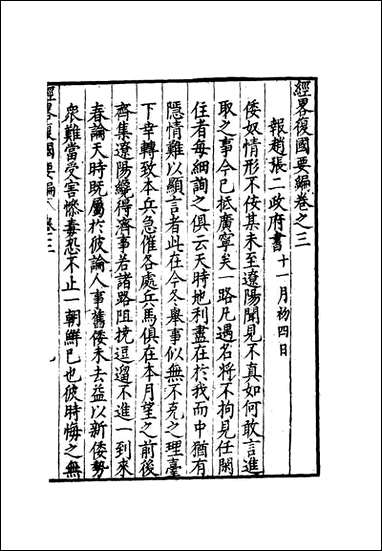 經畧復國要編卷之三
報趙張二政府書十一月初四日
倭奴情形不佞其未至遼陽聞見不真如何敢言進
取之事今已抵廣寧矣一路凡遇名將不拘見任閑
住者每細詢之俱云天時地利盡在於我而中猶有
隱情難以顯言者此在今冬舉事似無不克之理臺
下幸轉致本兵急催各處兵馬俱在本月望之前後
齊集遼陽纔得濟事若諸路阻撓逗遛不進一到來
春論天時既屬於彼論人事舊倭未去益以新倭勢
衆難當受害慘毒恐不止一朝鮮已也彼時悔之無
經畧復國要編 卷三